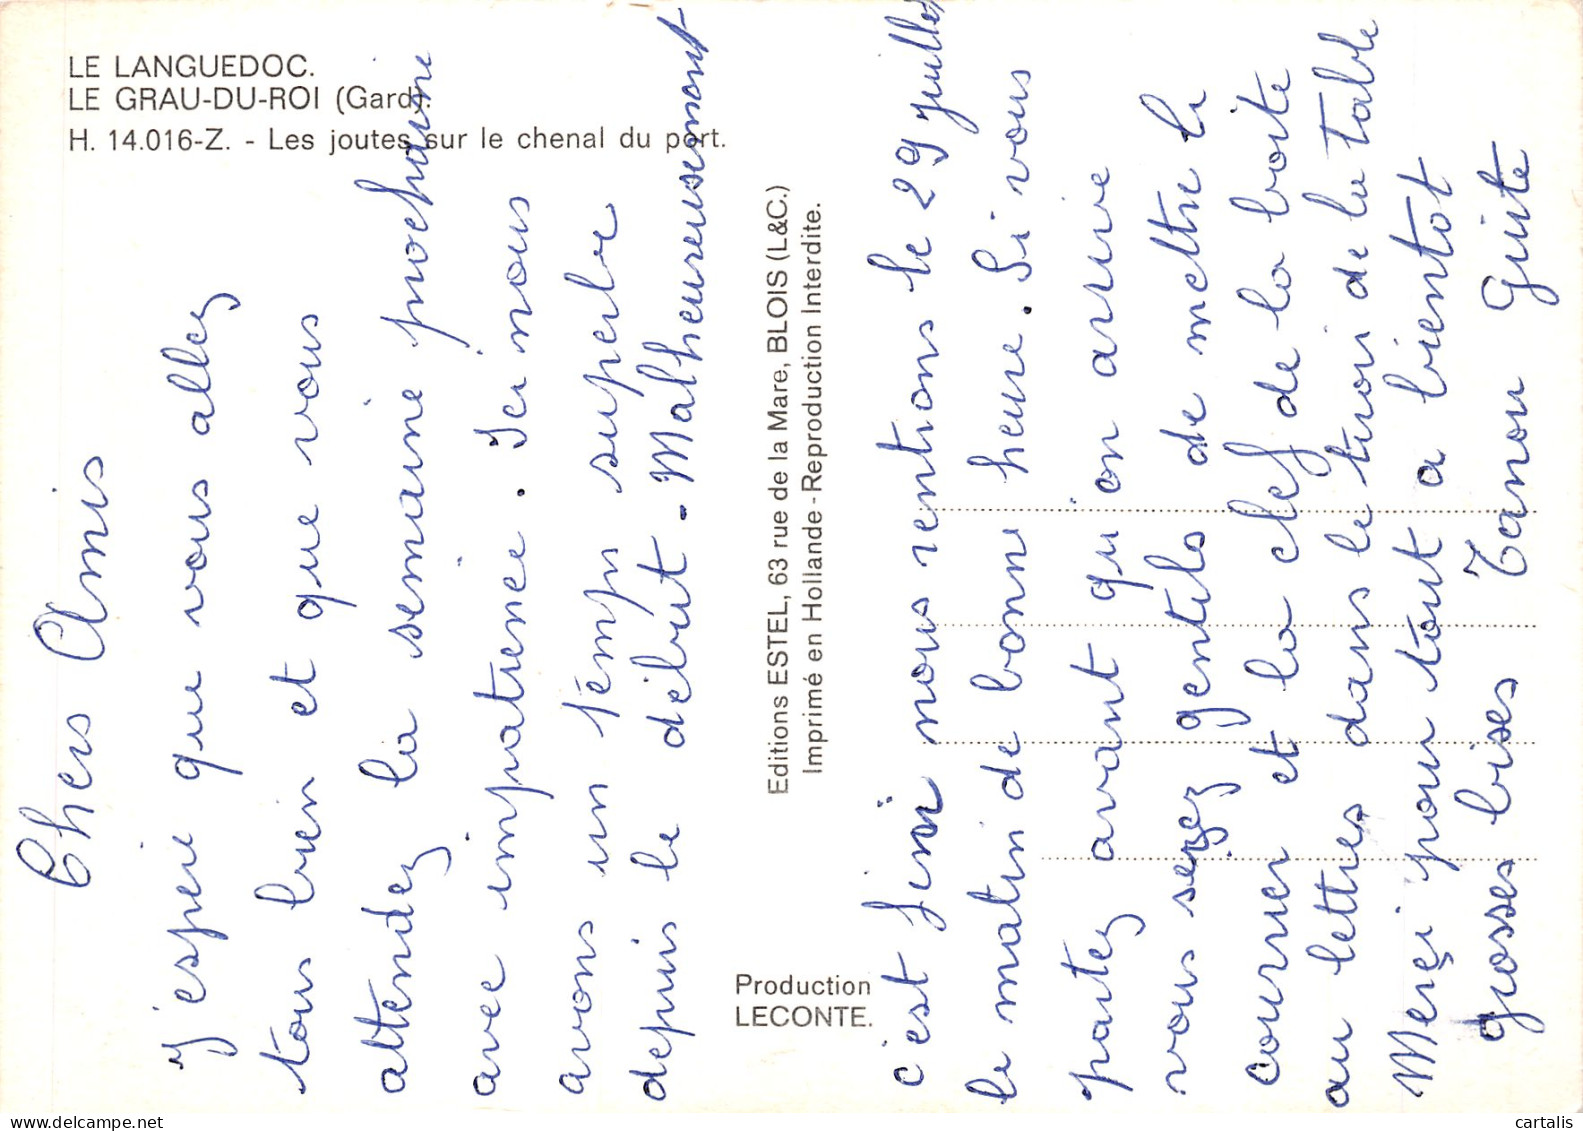 LE LANGUEDOC.
LE GRAU-DU-ROI (Gard).
H. 14.016-Z. - Les joutes sur le chenal du port.
Chers Amis
J'espere que vous allez
tous bien et que vous
attendez la semaine prochaine
avec impatience. Ici nous
avons un temps superbe
depuis le début - Malheureusement
Editions ESTEL, 63 rue de la Mare, BLOIS (L&C.)
Imprimé en Hollande - Reproduction Interdite.
Production
LECONTE.
c'est fini nous rentrons le 29 juillet
le matin de bonne heure. Si vous
partez avant qu'on arrive
vous serez gentils de mettre le
courrier et la clef de la boite
au lettres dans le tiroi de la table
Merçi pour tout a bientot
grosses bises Tanou Guite
cartalis